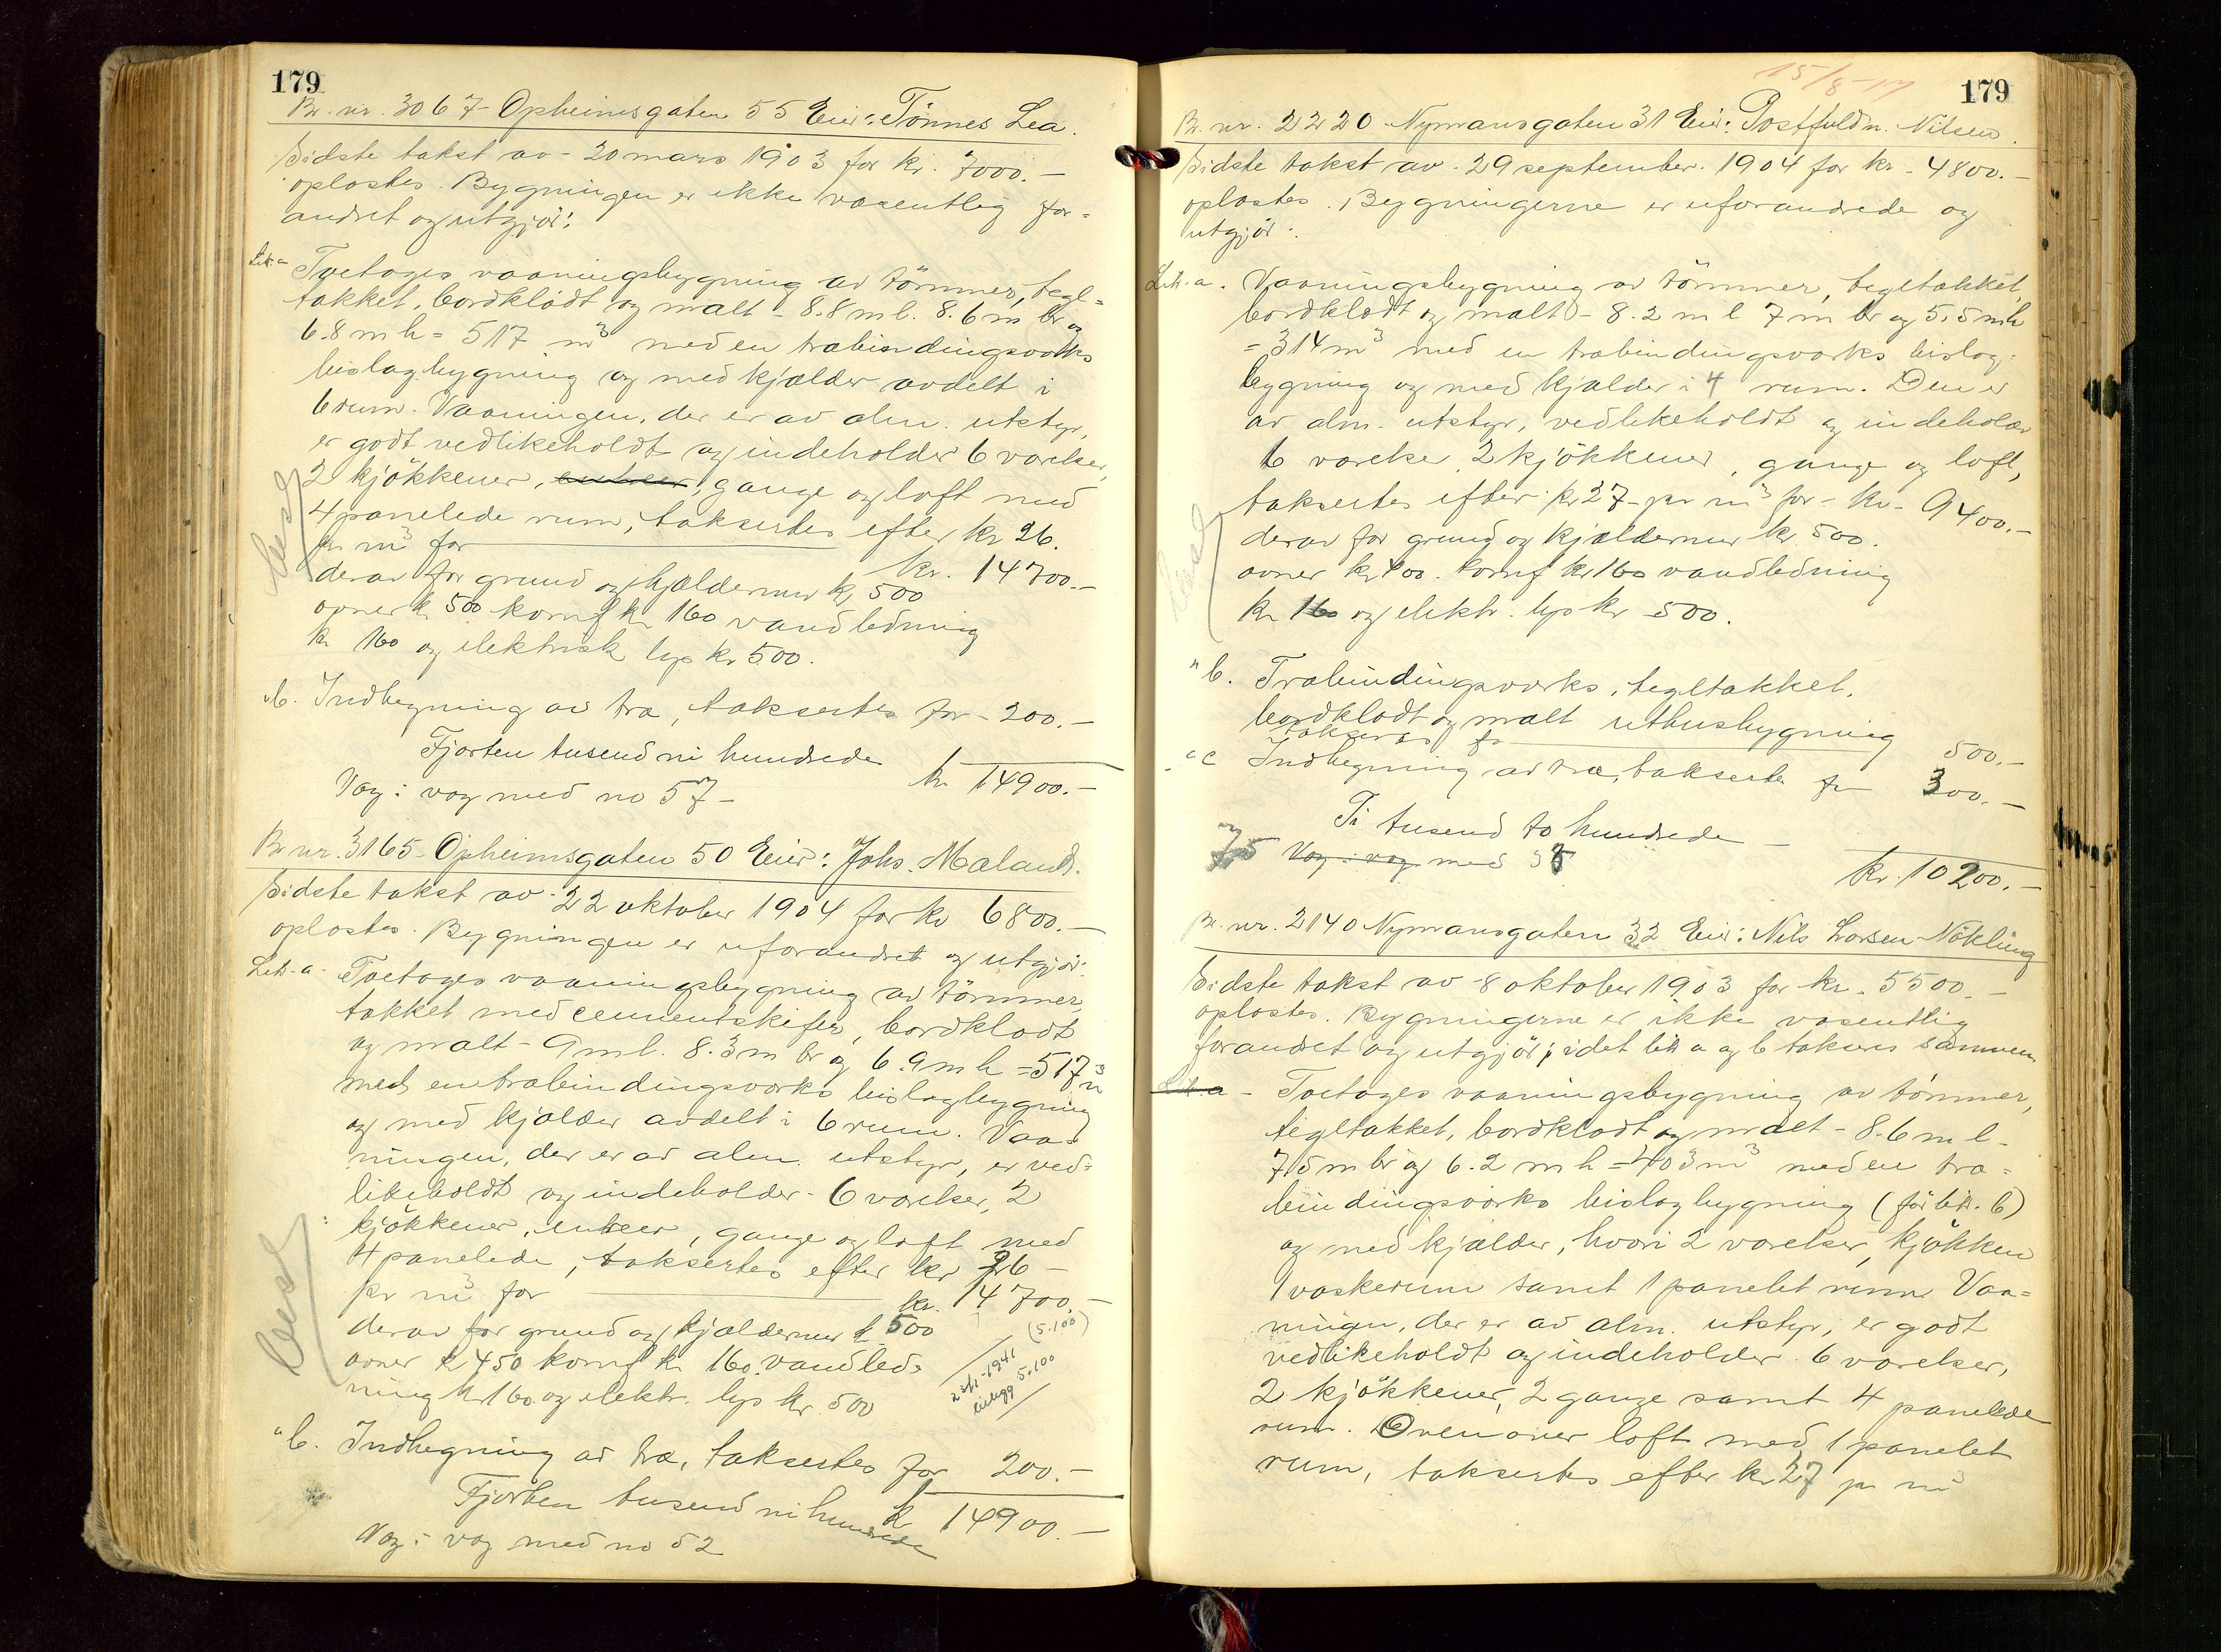 179
Br. nr. 3067 - Opheimsgaten 55 Eier: Tönnes Lea.
Sidste takst av - 20 mars 1903 for kr. 7000.-
oplæstes. Bygningen er ikke væsentlig for=
andret og utgjør:
Litr. a Toetages vaaningsbygning av tömmer, tegl=
tækket, bordklædt og malt - 8.8 m l. 8.6 m br og
6.8 m h = 517 m³ med en træbindingsverks
bislagbygning og med kjælder avdelt i
6 rum. Vaaningen, der er av alm. utstyr,
er godt vedlikeholdt og indeholder 6 værelser,
2 kjökkener, entreer, gange og loft med
4 panelede rum, taksertes efter kr 26.
pr m³ for kr. 14700.-
derav for grund og kjældermur kr 500
ovner kr 500 komf kr 160 vandledning
kr 160 og elektrisk lys kr 500.
" b. Indhegning av træ, taksertes for - 200.-
Fjorten tusend ni hundrede kr 14900.-
Væg: væg med no 57 -
Br nr. 3165 - Opheimsgaten 50 Eier: Johs. Mæland.
Sidste takst av - 22 oktober 1904 for kr 6800.-
oplæstes. Bygningen er uforandret og utgjør:
Litr. a - Toetages vaaningsbygning av tömmer,
tækket med cementskifer, bordklædt
og malt - 9 m l. 8.3 m br og 6.9 m h = 517 m³
med en træbindingsverks bislagbygning
og med kjælder avdelt i 6 rum. Vaa=
ningen, der er av alm. utstyr, er ved=
likeholdt og indeholder - 6 værelser, 2
kjökkener, entreer, gange og loft med
4 panelede, taksertes efter kr 26 -
pr m³ for kr. 14700.-
(5.100)
derav for grund og kjældermur kr 500
ovner kr 450 komf kr 160 vandled=
ning kr 160 og elektr. lys kr 500
1941
innlegg 5.100
" b. Indhegning av træ, taksertes for 200.-
Fjorten tusend ni hundrede kr 14900.-
Væg: væg med no 52
15/8-17
179
Br. nr. 2220 - Nymansgaten 31 Eier: Postfuldm. Nilsen.
Sidste takst av - 29 september. 1904 for kr - 4800.-
oplæstes. Bygningerne er uforandrede og
utgjør:
Litr. a. Vaaningsbygning av tömmer, tegltækket,
bordklædt og malt - 8.2 m l 7 m br og 5.5 m h
= 314 m³ med en træbindingsverks bislag=
bygning og med kjælder i 4 rum. Den er
av alm. utstyr, vedlikeholdt og indeholder
6 værelse, 2 kjökkener, gange og loft,
taksertes efter kr 27 - pr m³ for - kr. 9400.-
derav for grund og kjældermur kr. 500.
ovner kr 400. komf kr 160 vandledning
kr 160 og elektr. lys kr 500.
" b. Træbindingsverks, tegltækket,
bordklædt og malt uthusbygning
takseres for 500.-
" c Indhegning av træ, taksertes for 300.-
Ti tusend to hundrede -
Væg: væg med kr. 10200.-
Br. nr. 2140 Nymansgaten 32 Eier: Nils Larsen Nökling
Sidste takst av - 8 oktober 1903 for kr. 5500.-
oplæstes. Bygningerne er ikke væsentlig
forandret og utgjør; idet litr a og b takseres sammen
Litr. a - Toetages vaaningsbygning av tömmer,
tegltækket, bordklædt og malt - 8.6 m l -
7.5 m br og 6.2 m h = 403 m³ med en træ=
bindingsverks bislagbygning (før litr. b)
og med kjælder, hvori 2 værelser, kjökken
1 vaskerum samt 1 panelet rum Vaa=
ningen, der er av alm. utstyr, er godt
vedlikeholdt og indeholder. 6 værelser,
2 kjökkener, 2 gange samt 4 panelede
rum. Ovenover loft med 1 panelet
rum, taksertes efter kr 27 pr m³